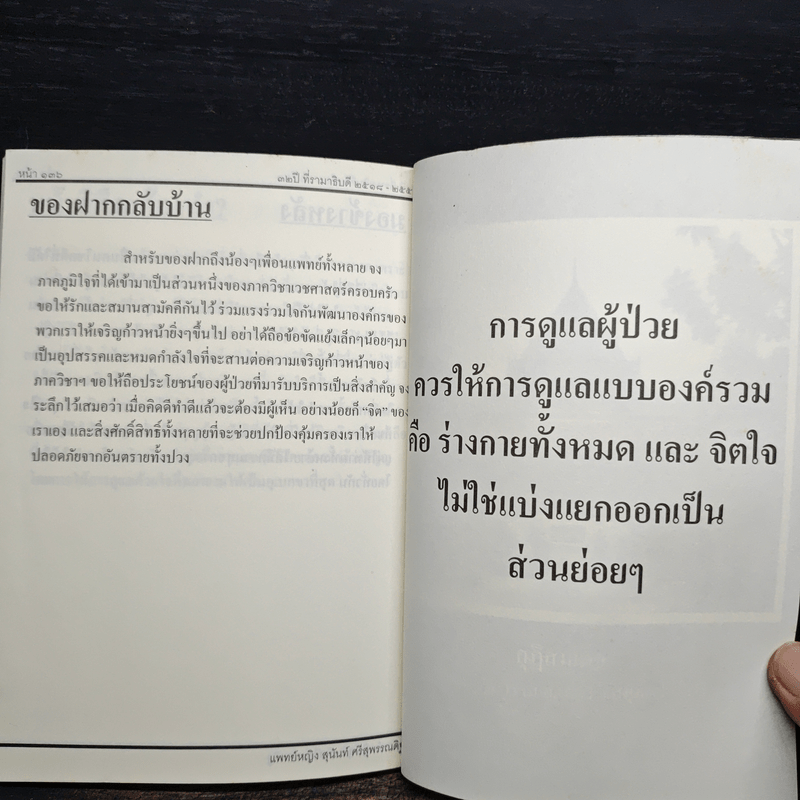 หน้า ๑๓๖
๓๒ปี ที่รามาธิบดี ๒๕๑๘ - ๒๕๕
ของฝากกลับบ้าน
สำหรับของฝากถึงน้องๆเพื่อนแพทย์ทั้งหลาย จง
ภาคภูมิใจที่ได้เข้ามาเป็นส่วนหนึ่งของภาควิชาเวชศาสตร์ครอบครัว
ขอให้รักและสมานสามัคคีกันไว้ ร่วมแรงร่วมใจกันพัฒนาองค์กรของ
พวกเราให้เจริญก้าวหน้ายิ่งๆขึ้นไป อย่าได้ถือข้อขัดแย้งเล็กๆน้อยๆมา
เป็นอุปสรรคและหมดกำลังใจที่จะสานต่อความเจริญก้าวหน้าของ
ภาควิชาฯ ขอให้ถือประโยชน์ของผู้ป่วยที่มารับบริการเป็นสิ่งสำคัญ จง
ระลึกไว้เสมอว่า เมื่อคิดดีทำดีแล้วจะต้องมีผู้เห็น อย่างน้อยก็ “จิต” ของ
เราเอง และสิ่งศักดิ์สิทธิ์ทั้งหลายที่จะช่วยปกป้องคุ้มครองเราให้
ปลอดภัยจากอันตรายทั้งปวง
แพทย์หญิง สุนันท์ ศรีสุพรรณดิฐ
การดูแลผู้ป่วย
ควรให้การดูแลแบบองค์รวม
คือ ร่างกายทั้งหมด และ จิตใจ
ไม่ใช่แบ่งแยกออกเป็น
ส่วนย่อยๆ